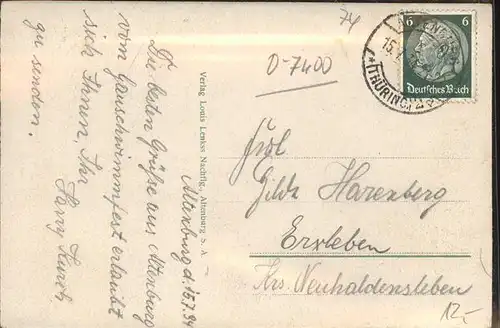 Altenburg d. 15.7.34
Die besten Grüße aus Altenburg
vom Gauschwimmfest erlaubt
sich Ihnen, Ihr
Harry
zu senden.
Verlag Louis Lenkss Nachflg., Altenburg S.-A.
74
D-7400
15.7
(THÜRING.)
6 6
Deutsches Reich
Frl
Gilda Harenberg
Erxleben
Krs. Neuhaldensleben
12,-